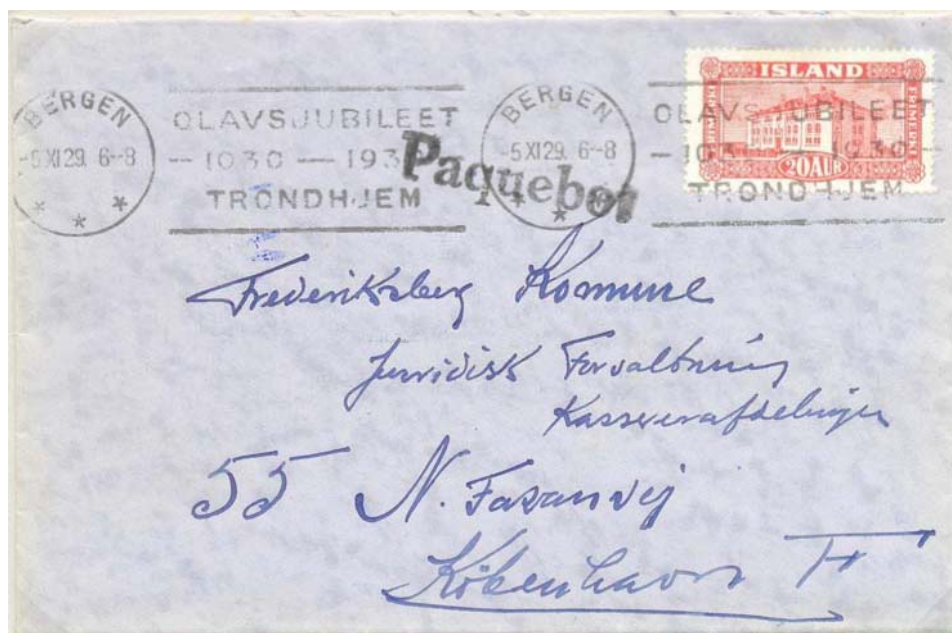 BERGEN
-5 XI 29. 6-8
* * *
OLAVSJUBILEET
— 1030 — 193
TRONDHJEM
Paquebot
BERGEN
-5 XI 29. 6-8
* * *
OLAVSJUBILEET
— 103 1930 —
TRONDHJEM
ISLAND
FRIMERKI
FRIMERKI
20 AUR
Frederiksberg Kommune
Juridisk Forvaltning
Kassererafdelingen
55 N. Fasanvej
København F